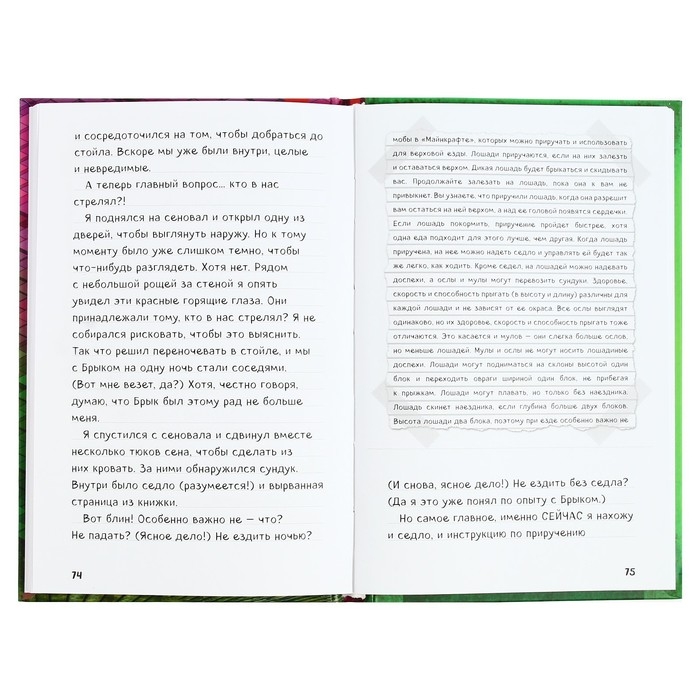 и сосредоточился на том, чтобы добраться до
стойла. Вскоре мы уже были внутри, целые
и невредимые.
А теперь главный вопрос... кто в нас
стрелял?!
Я поднялся на сеновал и открыл одну из
дверей, чтобы выглянуть наружу. Но к тому
моменту было уже слишком темно, чтобы
что-нибудь разглядеть. Хотя нет. Рядом
с небольшой рощей за стеной я опять
увидел эти красные горящие глаза. Они
принадлежали тому, кто в нас стрелял? Я не
собирался рисковать, чтобы это выяснить.
Так что решил переночевать в стойле, и мы
с Брыком на одну ночь стали соседями.
(Вот мне везет, да?) Хотя, честно говоря,
думаю, что Брык был этому рад не больше
меня.
Я спустился с сеновала и сдвинул вместе
несколько тюков сена, чтобы сделать из
них кровать. За ними обнаружился сундук.
Внутри было седло (разумеется!) и вырванная
страница из книжки.
Вот блин! Особенно важно не — что?
Не падать? (Ясное дело!) Не ездить ночью?
74
мобы в «Майнкрафте», которых можно приручать и использовать
для верховой езды. Лошади приручаются, если на них залезть
и оставаться верхом. Дикая лошадь будет брыкаться и скидывать
вас. Продолжайте залезать на лошадь, пока она к вам не
привыкнет. Вы узнаете, что приручили лошадь, когда она разрешит
вам остаться на ней верхом, а над ее головой появятся сердечки.
Если лошадь покормить, приручение пройдет быстрее, хотя
одна еда подходит для этого лучше, чем другая. Когда лошадь
приручена, на нее можно надеть седло и управлять ей будет так
же легко, как ходить. Кроме седел, на лошадей можно надевать
доспехи, а ослы и мулы могут перевозить сундуки. Здоровье,
скорость и способность прыгать (в высоту и длину) различны для
каждой лошади и не зависят от ее окраса. Все ослы выглядят
одинаково, но их здоровье, скорость и способность прыгать тоже
отличаются. Это касается и мулов — они слегка больше ослов,
но меньше лошадей. Мулы и ослы не могут носить лошадиные
доспехи. Лошади могут подниматься на склоны высотой один
блок и переходить овраги шириной один блок, не прибегая
к прыжкам. Лошади могут плавать, но только без наездника.
Лошадь скинет наездника, если глубина больше двух блоков.
Высота лошади два блока, поэтому при езде особенно важно не
(И снова, ясное дело!) Не ездить без седла?
(Да я это уже понял по опыту с Брыком.)
Но самое главное, именно СЕЙЧАС я нахожу
и седло, и инструкцию по приручению
75